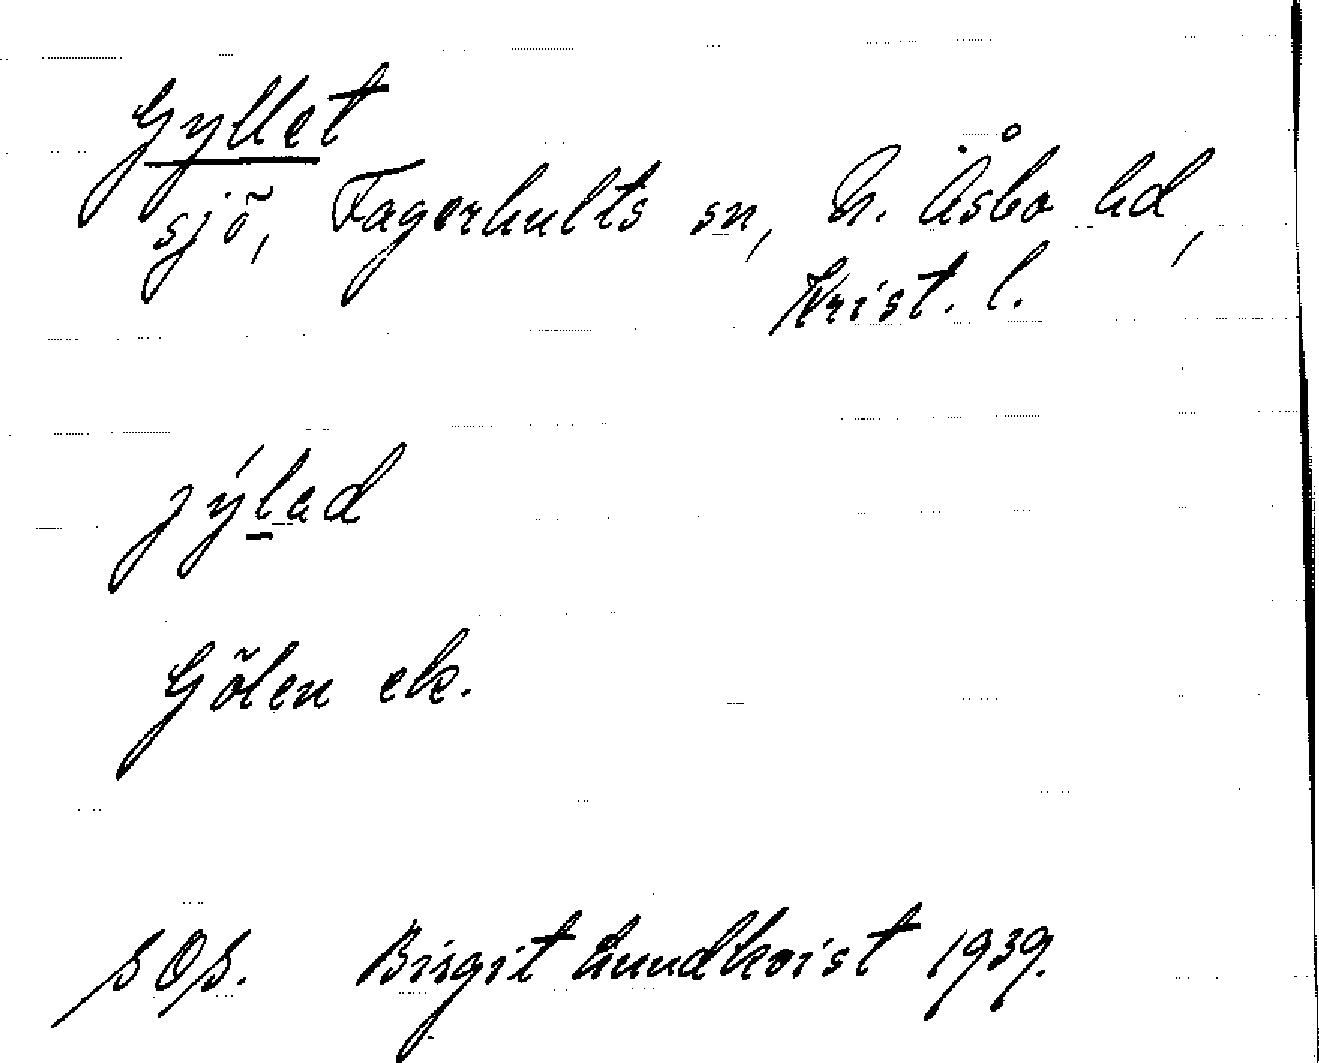 Gyllet
sjö, Fagerhults sn, N. Åsbo hd,
Krist. l.
jýlad
Gölen ek.
SOS. Birgit Lundkvist 1939.